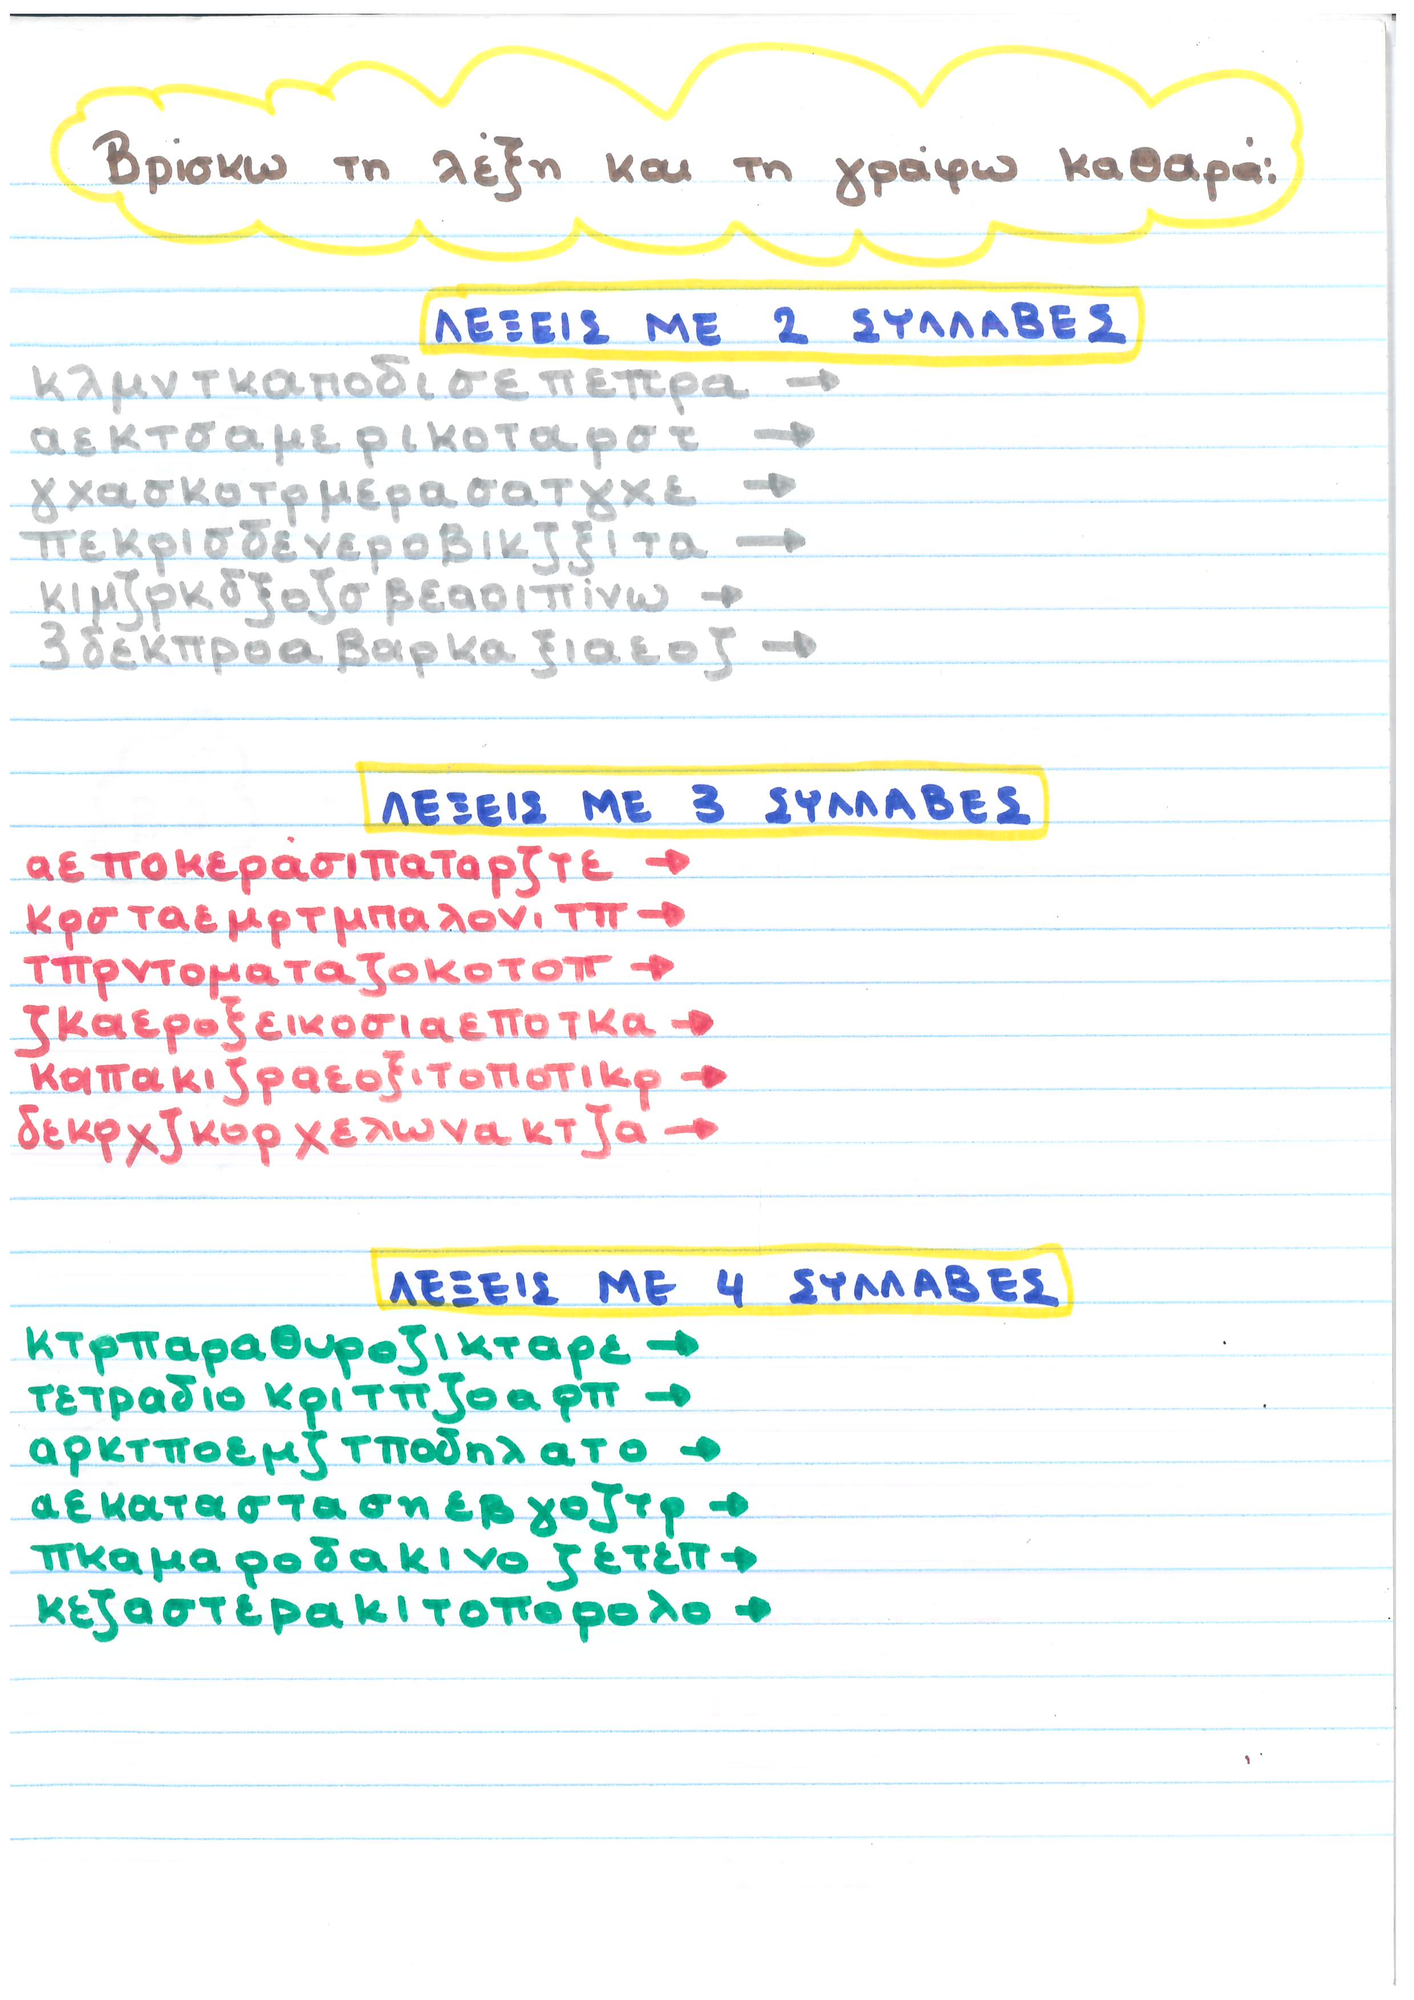 Βρίσκω τη λέξη και τη γράφω καθαρά:
ΛΕΞΕΙΣ ΜΕ 2 ΣΥΛΛΑΒΕΣ
κλμντκαποδισεπεπρα →
αεκτσαμερικοταρστ →
γχασκοτρμερασατγχε →
πεκρισδενεροβικζξιτα →
κιμζρκδξοζσβεασιπίνω →
3δεκπροαβαρκαξιαεοζ →
ΛΕΞΕΙΣ ΜΕ 3 ΣΥΛΛΑΒΕΣ
αεποκεράσιπαταρζτε →
κρσταεμρτμπαλονιτπ →
τπρντοματαζοκοτοπ →
ζκαεροξεικοσιαεποτκα →
καπακιζραεοξιτοποτικρ →
δεκρχζκορχελωνακτζα →
ΛΕΞΕΙΣ ΜΕ 4 ΣΥΛΛΑΒΕΣ
κτρπαραθυροζικταρε →
τετραδιοκριτπζοαρπ →
αρκτποεμζτποδηλατο →
αεκαταστασηεβγοζτρ →
πκαμαροδακινοζετεπ →
κεζαστερακιτοπορολο →